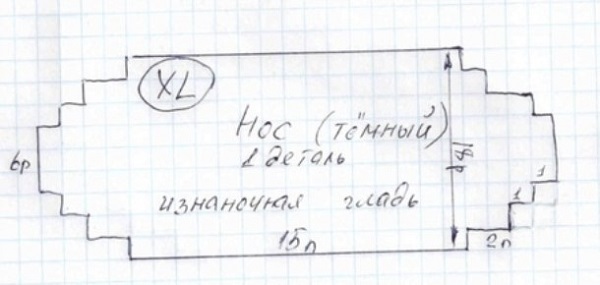 XL
Нос (тёмный)
1 деталь
6р
18р
1
1
изнаночная гладь
15п
2п